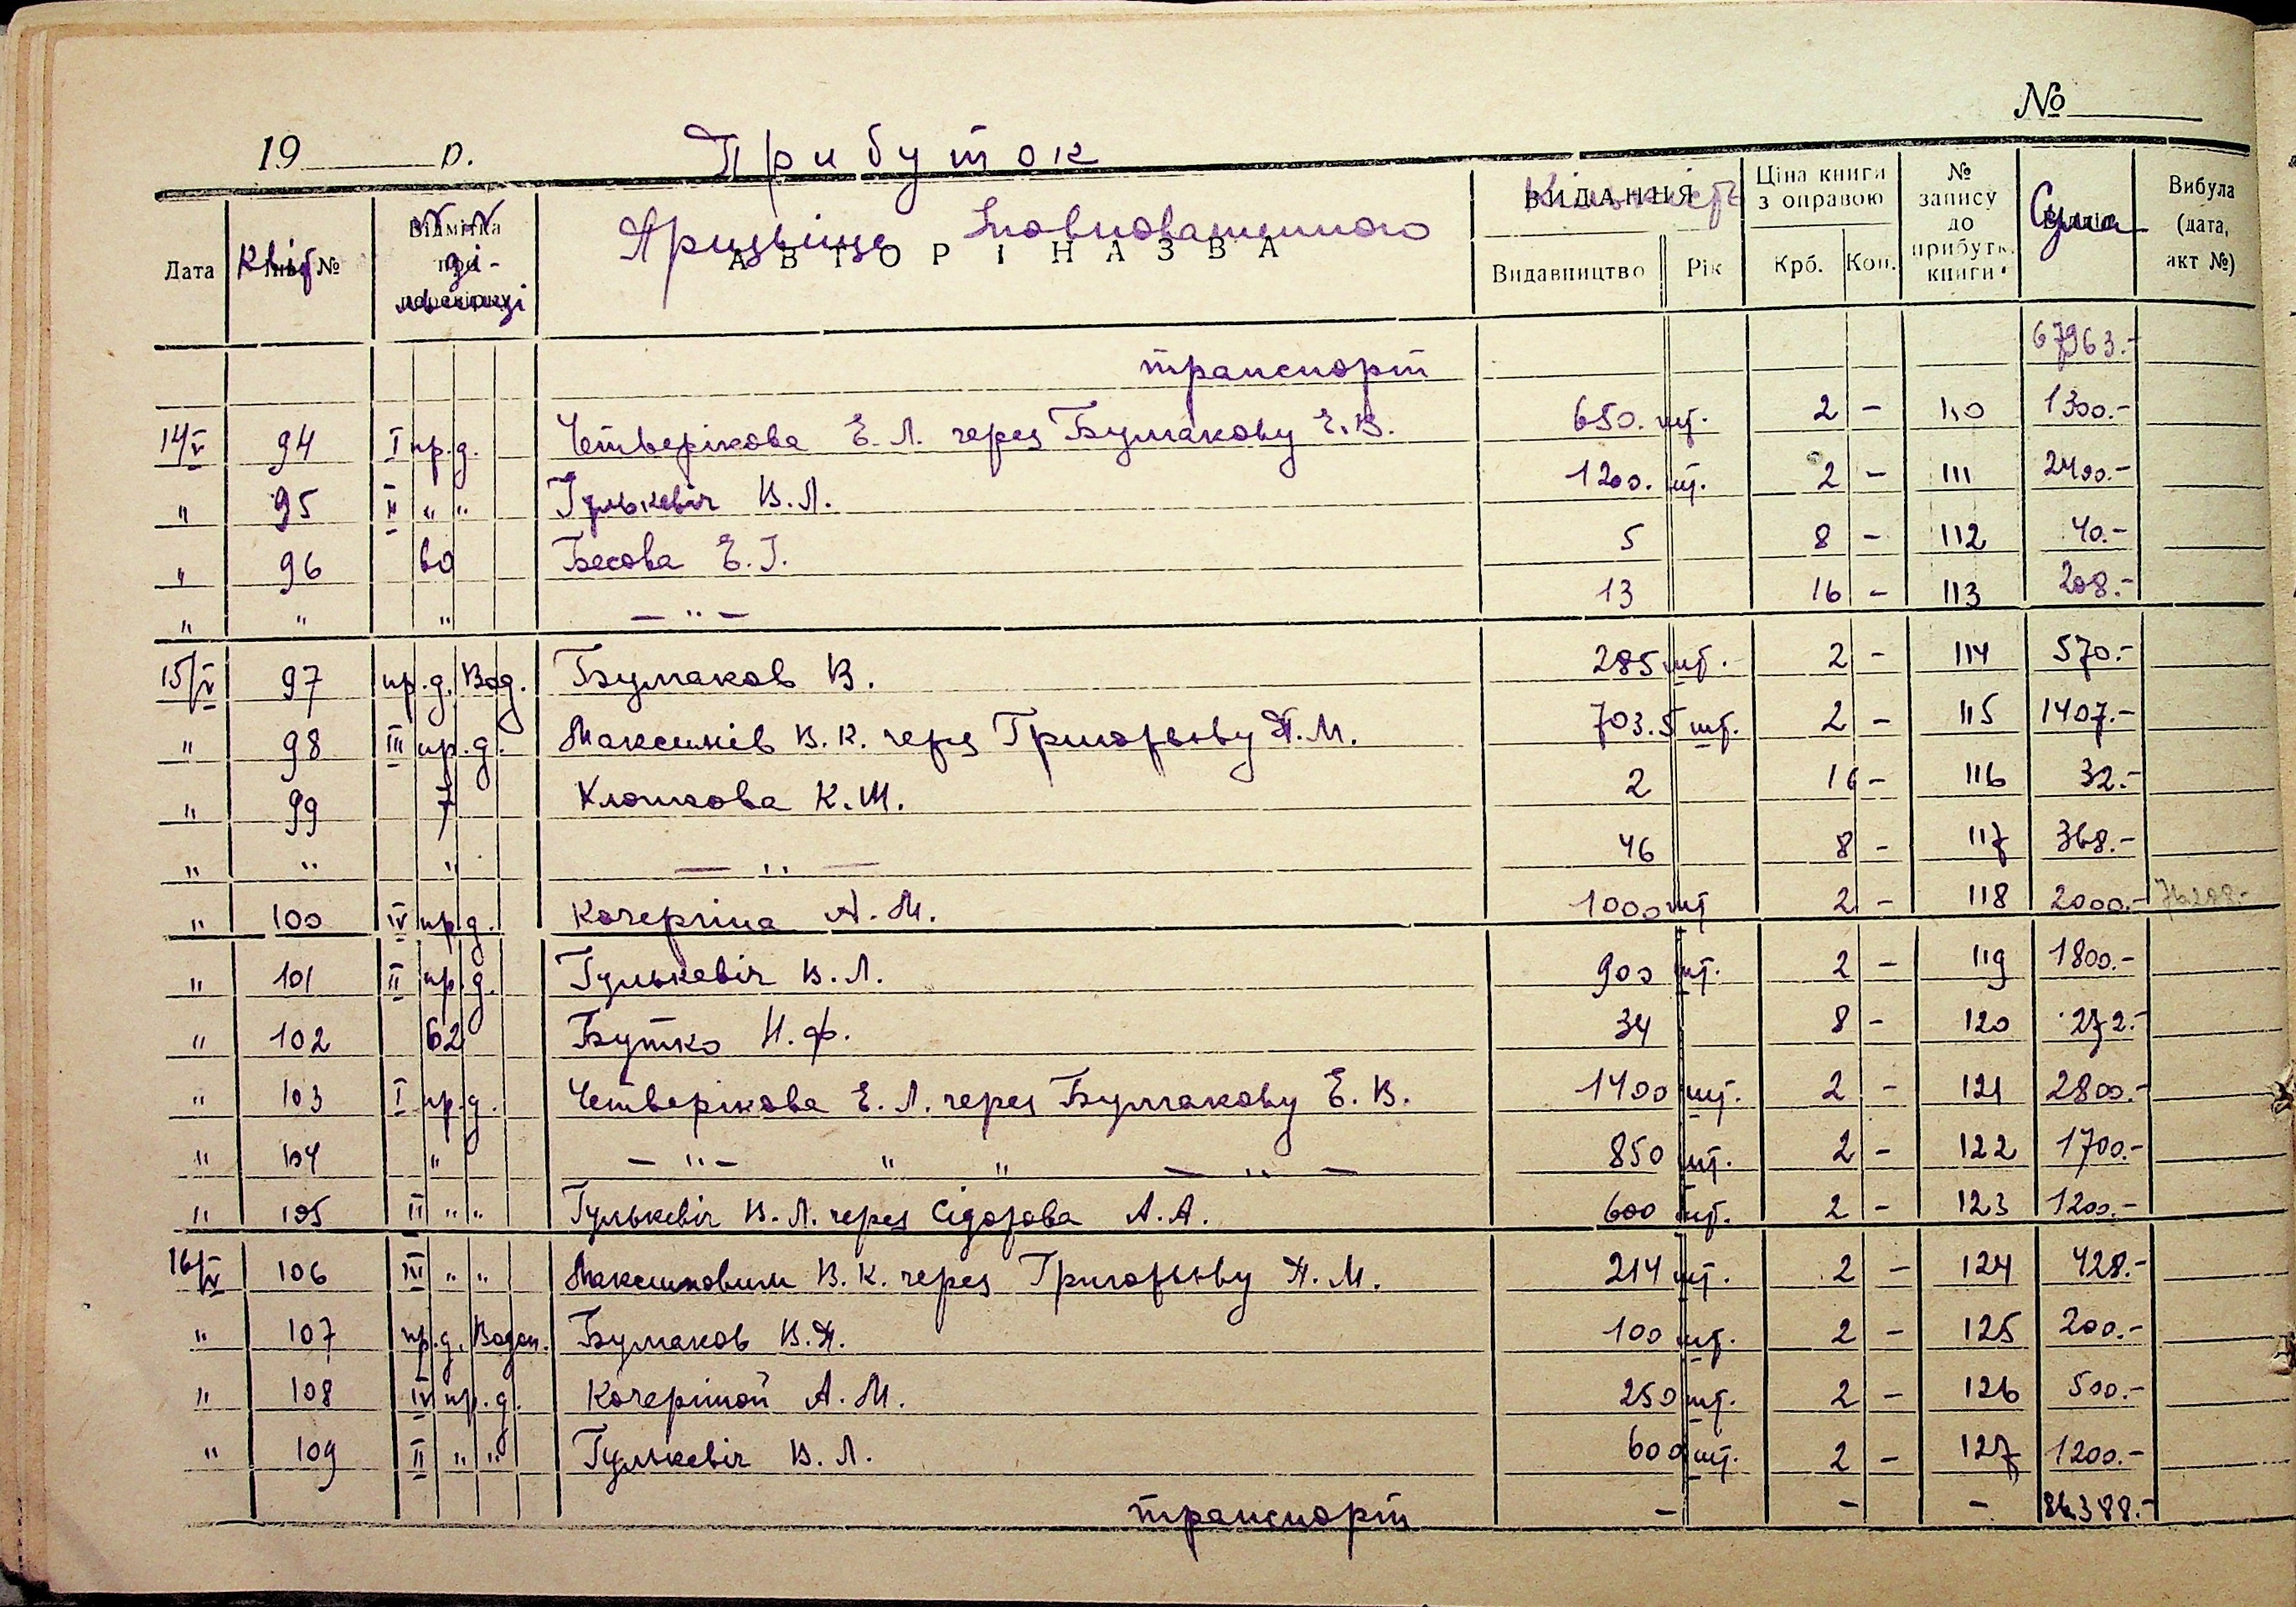 №
19 р. Прибуток
Дата Квіт № Відмітка АВТОР І НАЗВА Прізвіще Уповноваженного ВИДАННЯ Кількість Видавництво Рік Ціна книги з оправою Крб. Коп. № запису до прибутк. книги Сума Вибула (дата, акт №)
транспорт 67963.-
14/V 94 I пр.д. Четверікова Е. Л. через Булгакову Е. В. 650. шт. 2 - 110 1300.-
" 95 II " " Гулькевіч В. Л. 1200. шт. 2 - 111 2400.-
" 96 60 Бесова Е. Г. 5 8 - 112 40.-
" " " — " — 13 16 - 113 208.-
15/V 97 пр.д. Вод. Булгаков В. 285 шт. 2 - 114 570.-
" 98 III пр.д. Максимів В. К. через Григорьєву П. М. 703.5 шт. 2 - 115 1407.-
" 99 7 Клочкова К. Ш. 2 16 - 116 32.-
" " " — " — 46 8 - 117 368.-
" 100 IV пр.д. Кочергіна А. М. 1000 шт 2 - 118 2000.- 76288.-
" 101 II пр.д. Гулькевіч В. Л. 900 шт. 2 - 119 1800.-
" 102 62 Бутко Н. Ф. 34 8 - 120 272.-
" 103 I пр.д. Четверікова Е. Л. через Булгакову Е. В. 1400 шт. 2 - 121 2800.-
" 104 " — " — " " — " — 850 шт. 2 - 122 1700.-
" 105 II " " Гулькевіч В. Л. через Сідорова А. А. 600 шт. 2 - 123 1200.-
16/V 106 III " " Максимовим В. К. через Григорьєву П. М. 214 шт. 2 - 124 428.-
" 107 пр.д. Водоп. Булгаков В. П. 100 шт. 2 - 125 200.-
" 108 IV пр.д. Кочергіной А. М. 250 шт. 2 - 126 500.-
" 109 II " " Гулькевіч В. Л. 600 шт. 2 - 127 1200.-
транспорт - - - 86388.-